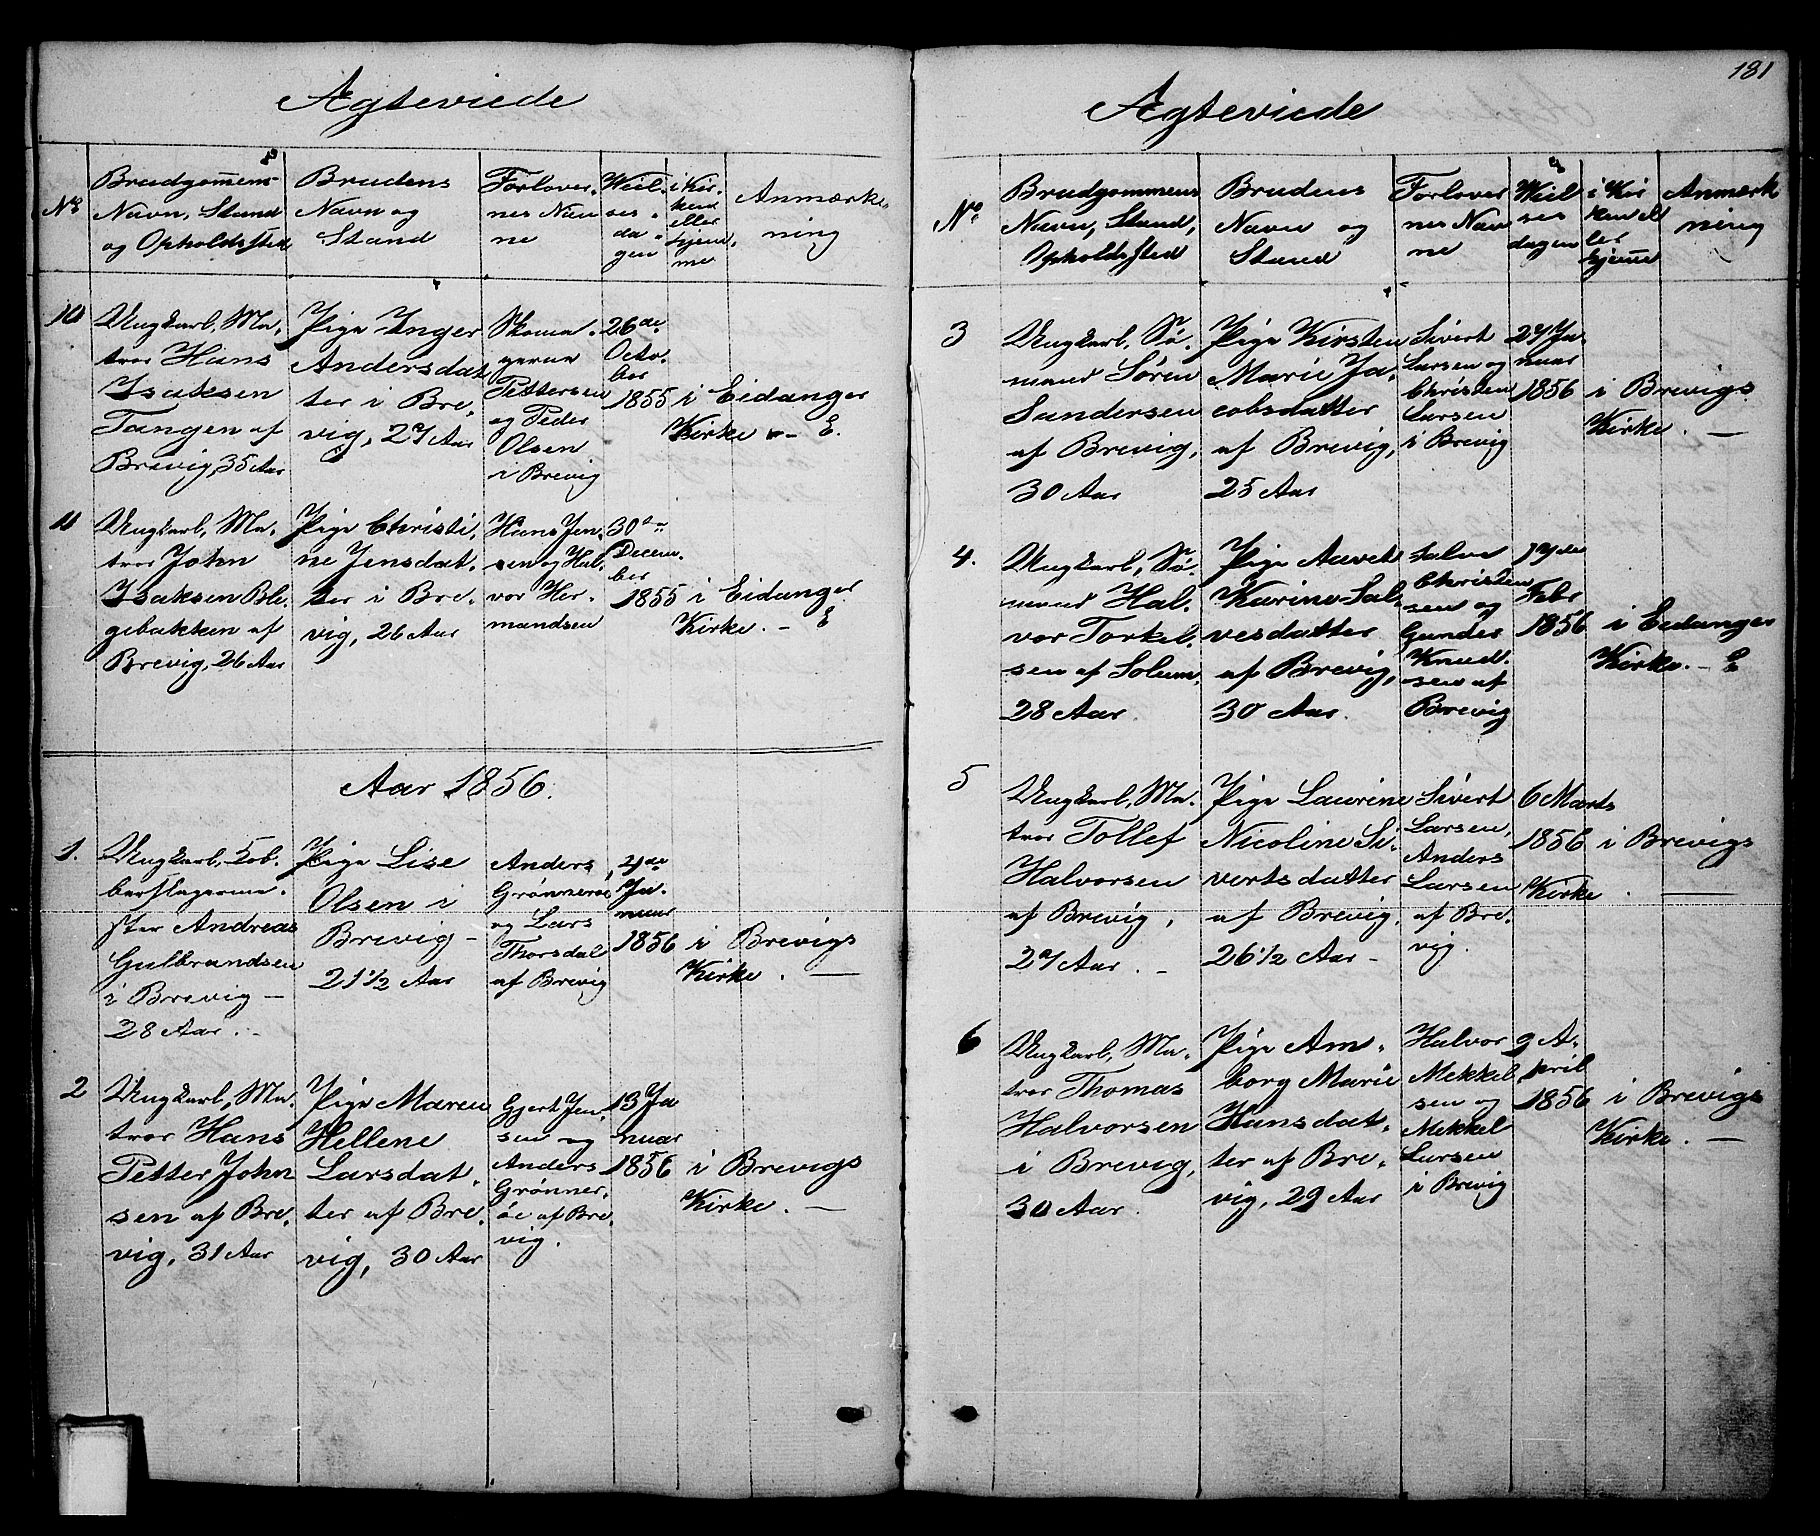 Ægteviede
No
Brudgommens
Navn, Stand
og Opholdssted
Brudens
Navn og
Stand
Forlover-
nes Nav
ne
Viel-
ses-
da-
gen
i Kir-
ken
eller
hjem-
me
Anmærk-
ning
10
Ungkarl, Ma-
tros Hans
Isaksen
Tangen af
Brevig, 35 Aar
Pige Inger
Andersdat
ter i Bre-
vig, 27 Aar
Skoma-
gerne
Pettersen
og Peder
Olsen
i Brevig
26de
Octo-
ber
1855
i Eidanger
Kirke. — E.
11
Ungkarl, Ma-
tros John
Isaksen Ble-
gebakken af
Brevig, 26 Aar
Pige Christi-
ne Jensdat-
ter i Bre-
vig, 26 Aar
Hans Jen-
sen og Hal-
vor Her-
mandsen
30te
Decem-
ber
1855
i Eidanger
Kirke. — E
Aar 1856.
1.
Ungkarl, Kob-
berslagerme-
ster Andreas
Gulbrandsen
i Brevig —
28 Aar. —
Pige Lise
Olsen i
Brevig —
21 1/2 Aar
Anders
Grønnerøe
og Lars
Thorsdal
af Brevig
4de
Ja-
nuar
1856
i Brevigs
Kirke. —
2
Ungkarl, Ma-
tros Hans
Petter John
sen af Bre-
vig, 31 Aar
Pige Maren
Hellene
Larsdat-
ter af Bre-
vig, 30 Aar
Gjert Jen-
sen og
Anders
Grønner-
øe af Bre-
vig.
13 Ja
nuar
1856
i Brevigs
Kirke. —
181
Ægteviede
No
Brudgommens
Navn, Stand,
Opholdssted
Brudens
Navn og
Stand
Forlover
nes Nav
ne
Viel
ses
dagen
i Kir
ken el
ler
hjemme
Anmærk
ning
3
Ungkarl, Sø-
mand Søren
Sandersen
af Brevig,
30 Aar
Pige Kirsten
Marie Ja-
cobsdatter
af Brevig,
25 Aar
Sivert
Larsen og
Christen
Larsen
i Brevig
27 Ja-
nuar
1856
i Brevigs
Kirke. —
4.
Ungkarl, Sø-
mand Hal-
vor Torkel-
sen af Solum,
28 Aar.
Pige Aaveth
Karine Sal-
vesdatter
af Brevig,
30 Aar.
Salve
Christen
sen og
Gunder
Knud-
sen af
Brevig
17de
Febr
1856
i Eidanger
Kirke. — E
5
Ungkarl, Ma-
tros Tollef
Halvorsen
af Brevig,
27 Aar. —
Pige Laurine
Nicoline Si-
vertsdatter
af Brevig,
26 1/2 Aar —
Sivert
Larsen,
Anders
Larsen
af Bre-
vig.
6 Marts
1856
i Brevigs
Kirke. —
6
Ungkarl, Ma-
tros Thomas
Halvorsen
i Brevig,
30 Aar.
Pige Am-
borg Marie
Hansdat-
ter af Bre-
vig, 29 Aar
Halvor
Mekkel
sen og
Mekkel
Larsen
i Brevig
9 A-
pril
1856
i Brevigs
Kirke. —